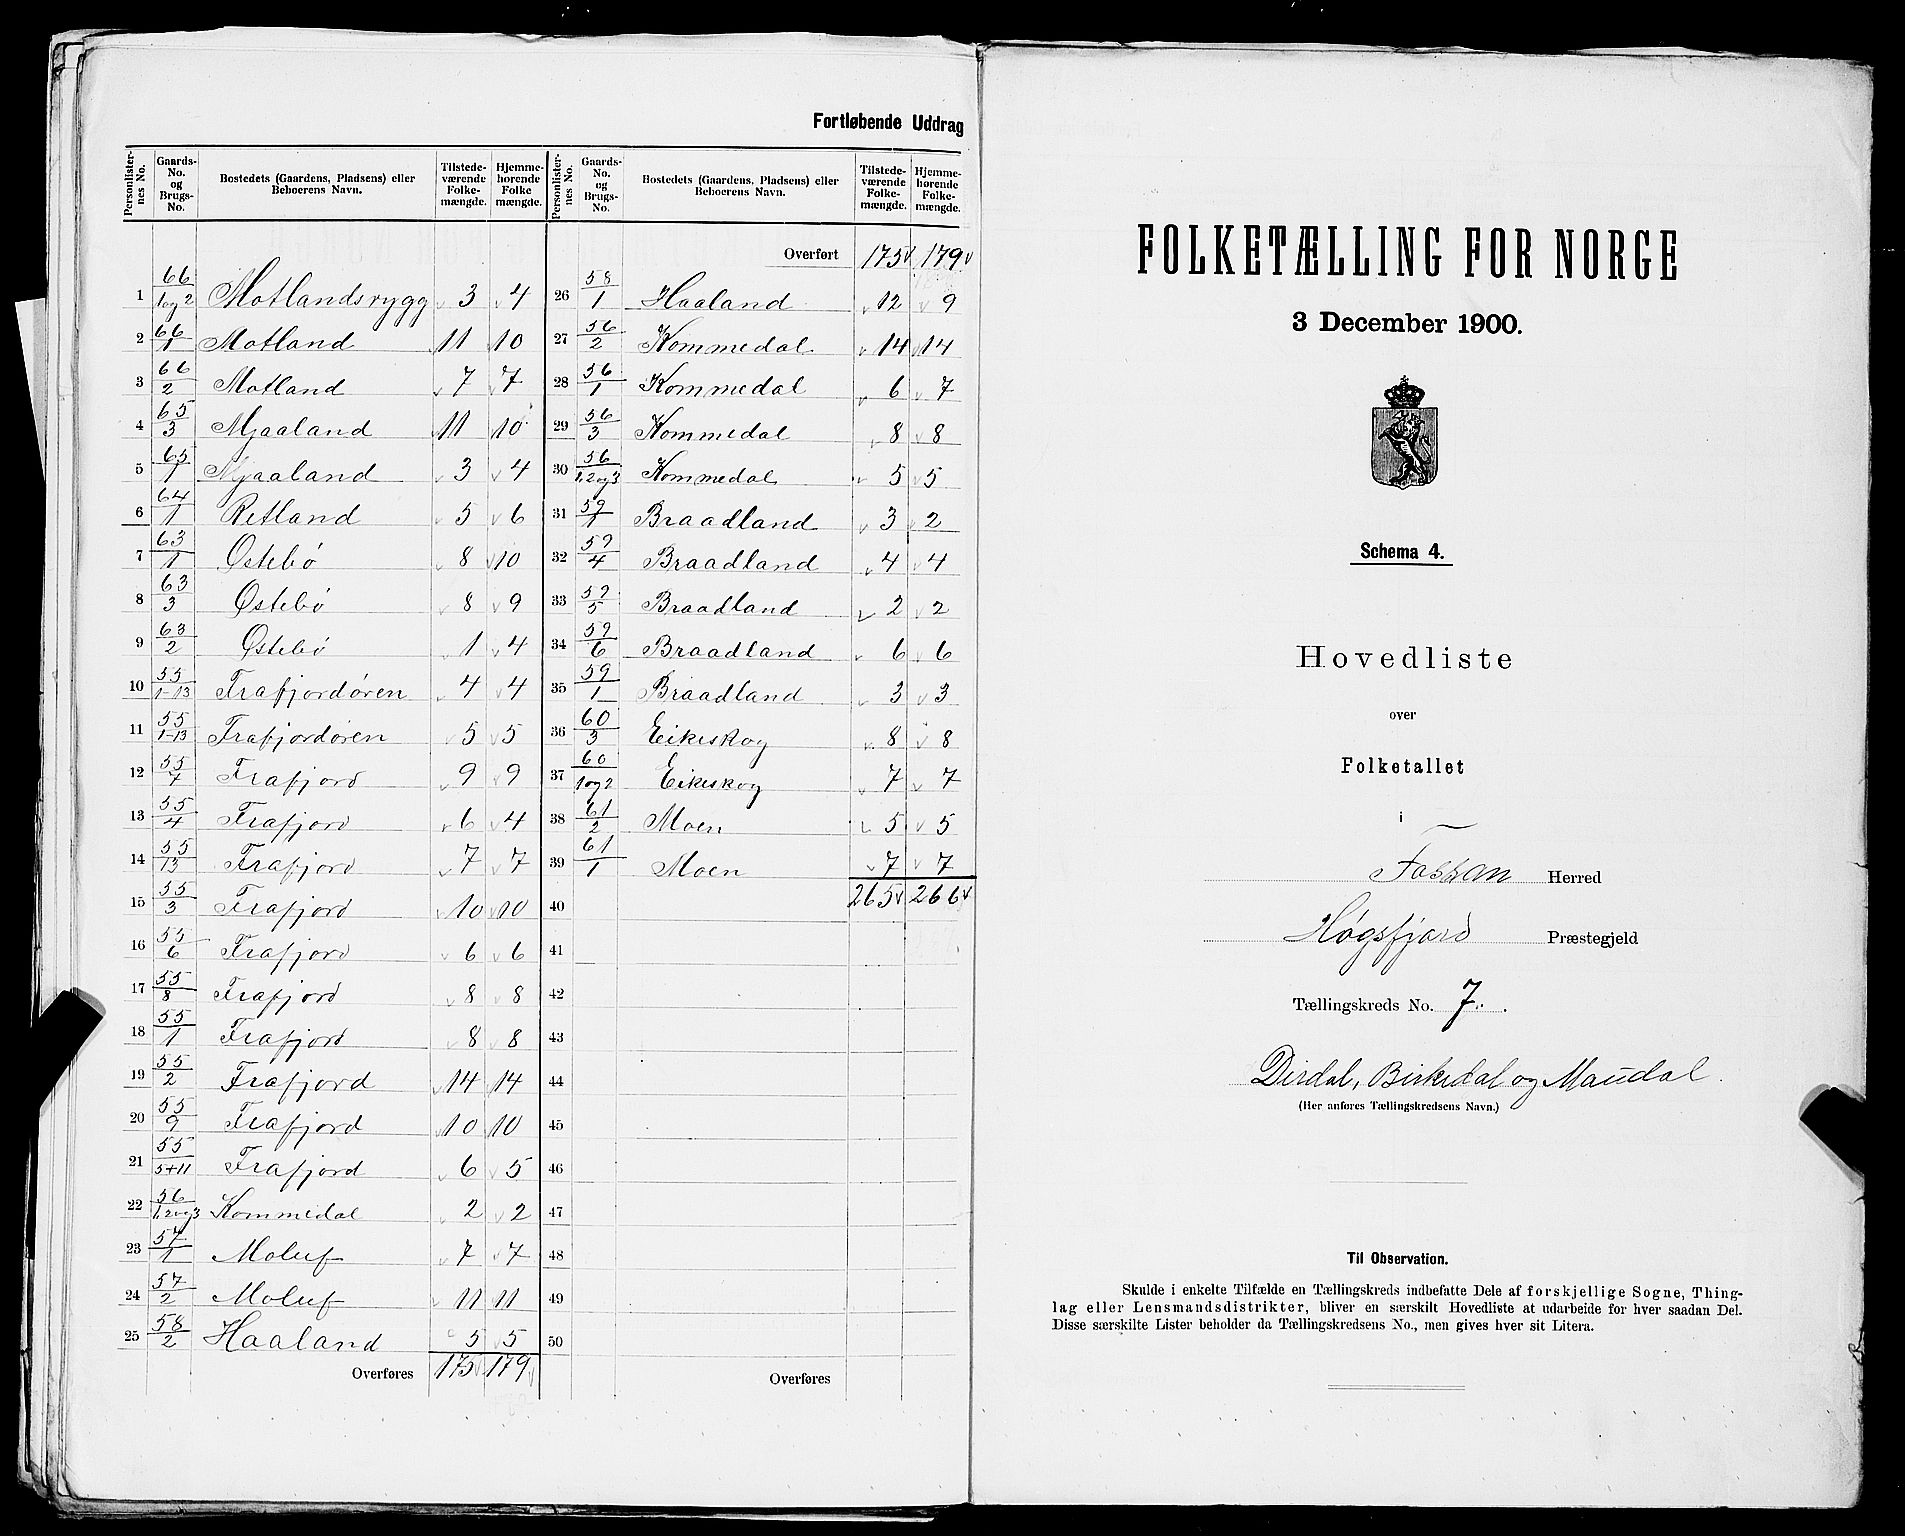 Fortløbende Uddrag
Personlister-nes No. | Gaards-No. og Brugs-No. | Bostedets (Gaardens, Pladsens) eller Beboerens Navn. | Tilstede-værende Folke-mængde. | Hjemme-hørende Folke mængde. | Personlister-nes No. | Gaards-No. og Brugs-No. | Bostedets (Gaardens, Pladsens) eller Beboerens Navn. | Tilstede-værende Folke-mængde. | Hjemme-hørende Folke-mængde.
Overført 175 179
1 66/1og2 Motlandsrygg 3 4 26 58/1 Haaland 12 9
2 66/1 Motland 11 10 27 56/2 Kommedal 14 14
3 66/2 Motland 7 7 28 56/1 Kommedal 6 7
4 65/3 Mjaaland 11 10 29 56/3 Kommedal 8 8
5 65/1 Mjaaland 3 4 30 56/1,2og3 Kommedal 5 5
6 64/1 Retland 5 6 31 59/1 Braadland 3 2
7 63/1 Østebø 8 10 32 59/4 Braadland 4 4
8 63/3 Østebø 8 9 33 59/5 Braadland 2 2
9 63/2 Østebø 1 4 34 59/6 Braadland 6 6
10 55/1-13 Frafjordøren 4 4 35 59/1 Braadland 3 3
11 55/1-13 Frafjordøren 5 5 36 60/3 Eikeskog 8 8
12 55/7 Frafjord 9 9 37 60/1og2 Eikeskog 7 7
13 55/4 Frafjord 6 4 38 61/2 Moen 5 5
14 55/13 Frafjord 7 7 39 61/1 Moen 7 7
15 55/3 Frafjord 10 10 40 265 266
16 55/6 Frafjord 6 6 41
17 55/8 Frafjord 8 8 42
18 55/1 Frafjord 8 8 43
19 55/2 Frafjord 14 14 44
20 55/9 Frafjord 10 10 45
21 55/5+11 Frafjord 6 5 46
22 56/1,2og3 Kommedal 2 2 47
23 57/1 Moluf 7 7 48
24 57/2 Moluf 11 11 49
25 58/2 Haaland 5 5 50
Overføres 175 179 Overføres
FOLKETÆLLING FOR NORGE
3 December 1900.
Schema 4.
Hovedliste
over
Folketallet
i
Fossan Herred
Høgsfjord Præstegjeld
Tællingskreds No. 7.
Dirdal, Birkedal og Maudal.
(Her anføres Tællingskredsens Navn.)
Til Observation.
Skulde i enkelte Tilfælde en Tællingskreds indbefatte Dele af forskjellige Sogne, Thing-
lag eller Lensmandsdistrikter, bliver en særskilt Hovedliste at udarbeide for hver saadan Del.
Disse særskilte Lister beholder da Tællingskredsens No., men gives hver sit Litera.